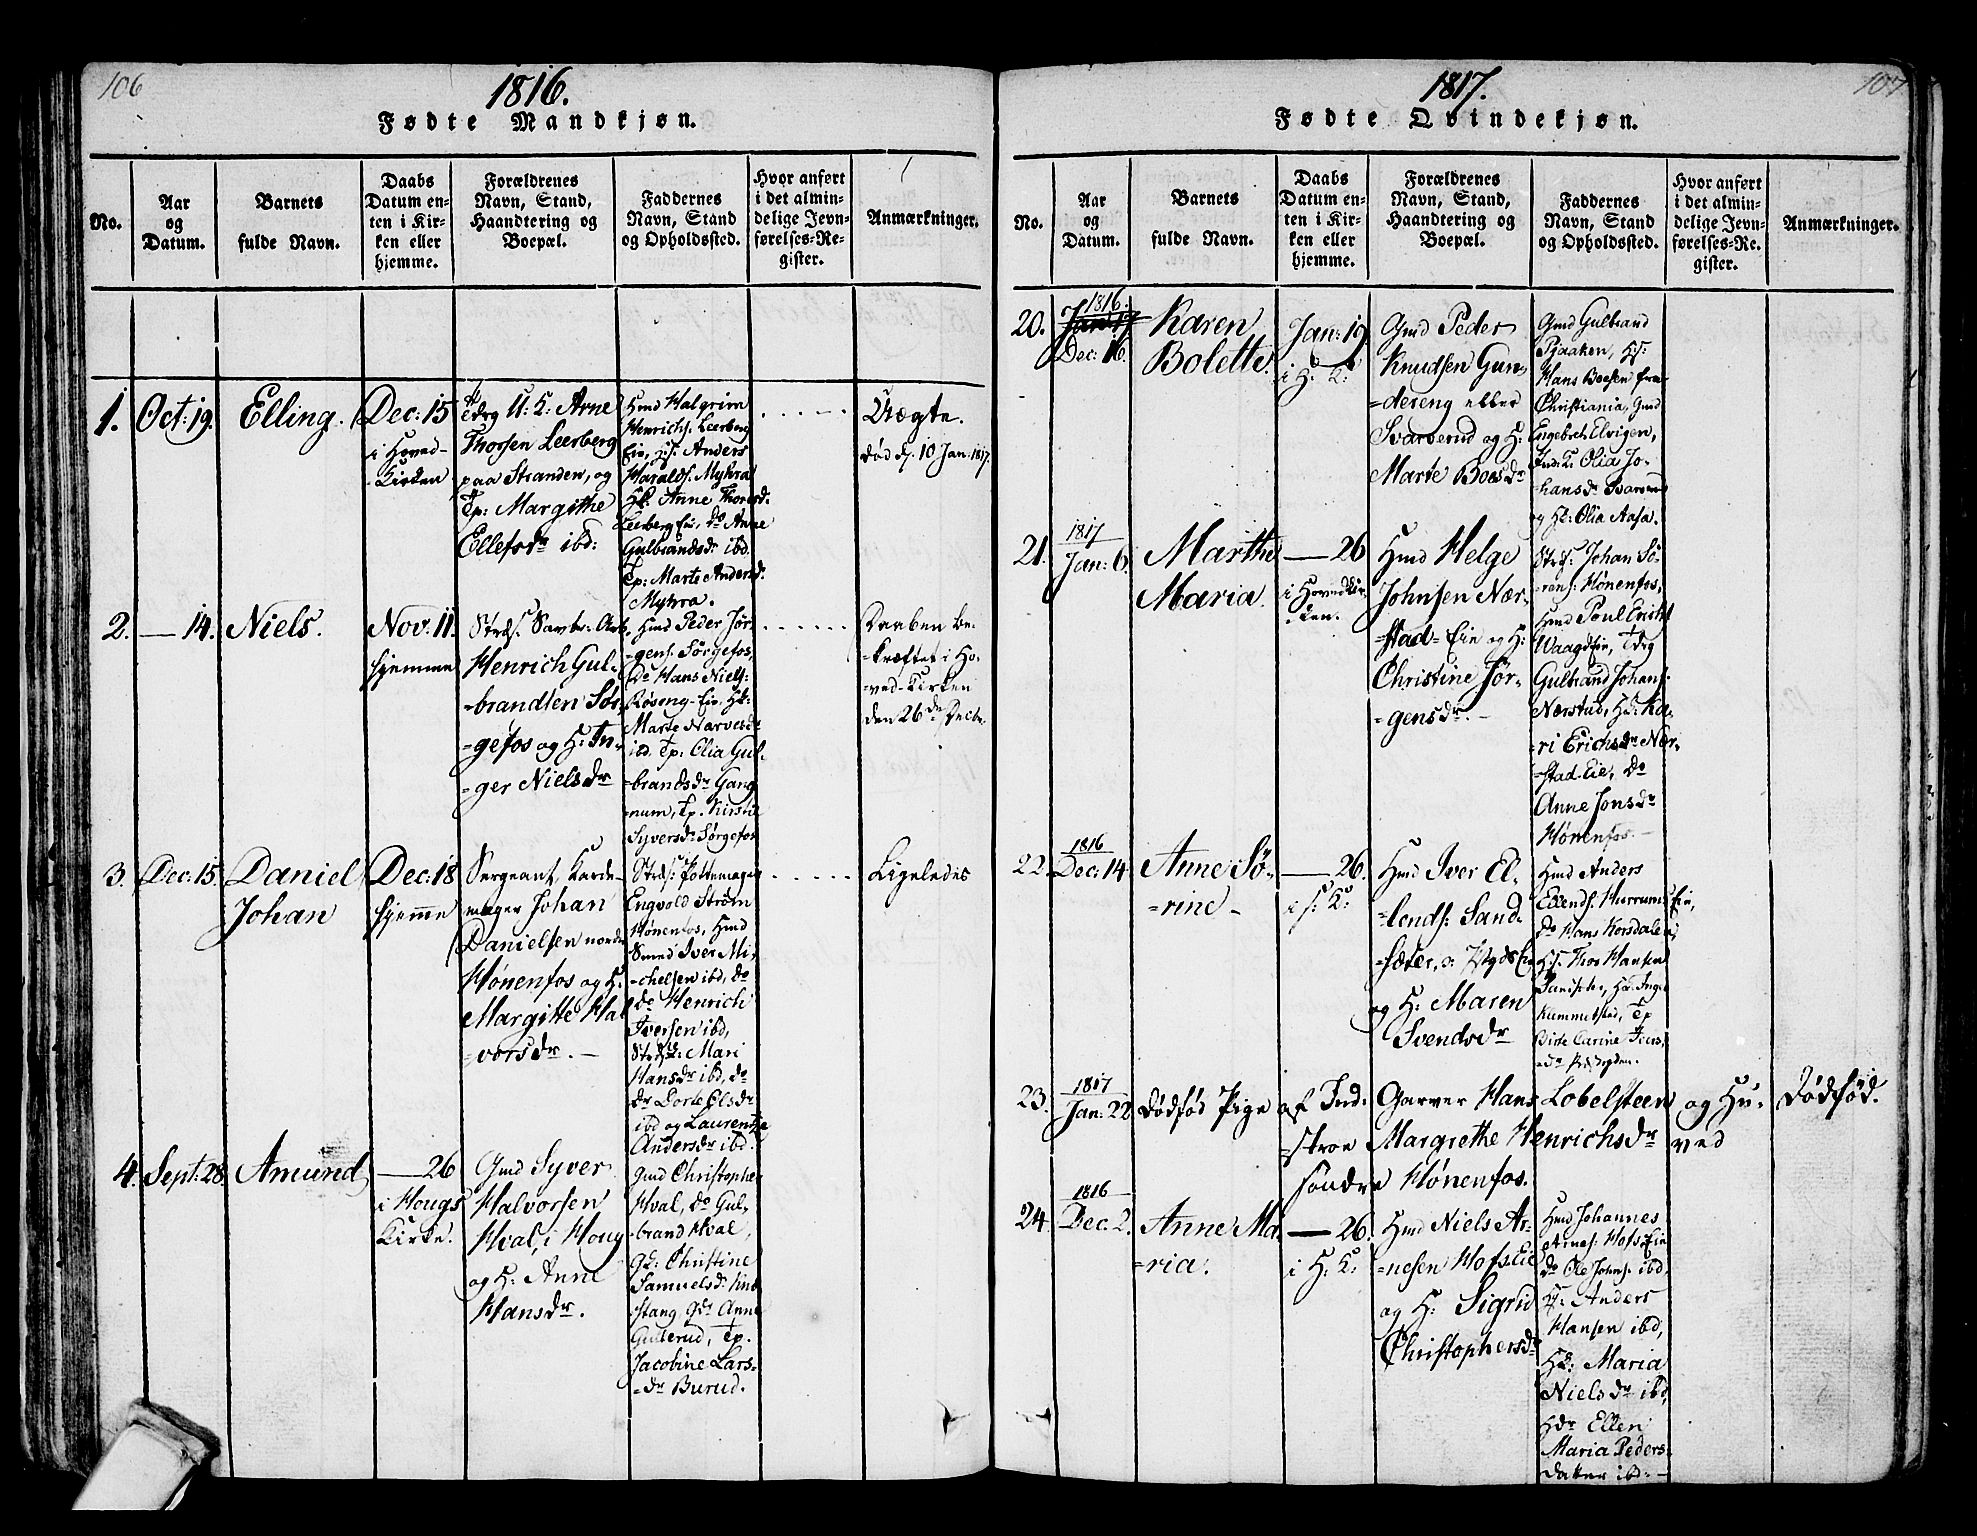 106
1816.
Fødte Mandkjøn.
No.
Aar
og
Datum.
Barnets
fulde Navn.
Daabs
Datum en-
ten i Kir-
ken eller
hjemme.
Forældrenes
Navn, Stand,
Haandtering og
Boepæl.
Faddernes
Navn, Stand
og Opholdssted.
Hvor anført
i det almin-
delige Jevn-
førelses-Re-
gister.
Anmærkninger.
1.
Oct: 19.
Elling.
Dec: 15
i Hoved-
Kirken
U: K: Arne
Thorsen Leerberg
paa Stranden, og
Tp: Margithe
Ellefsdr ibd:
Hmd Halgrim
Henrichs: Leerberg
Eie, Anders
Haralds: Myhra
Anne Thoresd.
Leerberg Eie, do Anne
Gulbrandsdr ibd.
Tp: Marte Andersd.
Myhra.
Uægte.
død d. 10 Jan. 1817.
2.
— 14.
Niels.
Nov: 11.
hjemme
Henrich Gul-
brandsen Sør-
gefos og H: In-
ger Nielsdr
Hmd Peder Jør-
gens: Sørgefos,
do Hans Niels:
Røseng-Eie, Hk:
Marte Narvesdr
ibd. Tp: Olia Gul-
brandsdr Gang-
num, Tp. Kirstie
Syversdr Sørgefos
Daaben be-
kræftet i Ho-
ved-Kirken
den 26de Decbr.
3.
Dec: 15.
Daniel
Johan
Dec: 18
hjemme
Sergeant, Karde-
mager Johan
Danielsen nordre
Hønenfos og H:
Margitte Hal
vorsdr. —
Strds: Pottemager
Engvold Strøm
Hønenfos, Hmd
Smed Iver Mi-
chelsen ibd, do
do Henrich
Iversen ibd,
Mari
Hansdr ibd, do
do Dorte Elsdr
ibd og Laurentze
Andersdr ibd.
Ligeledes
4.
Sept: 28.
Amund
— 26
i Hougs
Kirke.
Gmd Syver
Halvorsen
Hval, i Houg
og H: Anne
Hansdr.
Gmd Christopher
Hval, do Gul-
brand Hval,
Gk: Christine
Samuelsdr
Anne
Gullerud, Tp.
Jacobine Lars-
dr Burud.
107
1817.
Fødte Qvindekjøn.
No.
Aar
og
Datum.
Barnets
fulde Navn.
Daabs
Datum en-
ten i Kir-
ken eller
hjemme.
Forældrenes
Navn, Stand,
Haandtering og
Boepæl.
Faddernes
Navn, Stand
og Opholdssted.
Hvor anført
i det almin-
delige Jevn-
førelses-Re-
gister.
Anmærkninger.
20.
1816.
Dec: 16.
Karen
Bolette.
Jan: 19
i H: K:
Gmd Peder
Knudsen Gun-
dereng eller
Svarverud og H:
Marte Boesdr
Gmd Gulbrand
Hans Boesen fra
Christiania, Gmd
Engebret Elvigen,
Olia Jo-
hansdr
og Olia Aasa.
21.
1817
Jan: 6.
Marthe
Maria.
— 26
i Hovedkir-
ken.
Hmd Helge
Johnsen Nær-
stad-Eie og H:
Christine Jør-
gensdr. —
Strds: Johan Sö-
rens: Hønenfos,
Hmd Poul Erichs
Gulbrand Johans:
Nærstad, Ka-
ri Erichsdr Nær-
stad-Eie, do
Anne Jonsdr
Hønenfos —
22.
1816
Dec: 14
Anne Sö-
rine —
— 26.
i H: K:
Hmd Iver El-
lends: Sand-
og H: Maren
Svendsdr
Hmd Anders
Ellends: Hurrums Eie,
do Hans Korsdalen,
Thor Hansen
Tp
Carine
23.
1817
Jan: 22
dödföd Pige af Ind-
Garver Hans Lobelsteen og Hu-
stroe Margrethe Henrichsdr ved
söndre Hönenfos.
Dödföd.
24.
1816
Dec. 2.
Anne Ma-
ria.
— 26.
i H: K:
Hmd Niels Ar-
nesen Hofs Eie
og H: Sigrid
Christophersdr
Hmd Johannes
Arnes: Hofs Eie
do Ole Johns: ibd,
Anders
Hansen ibd,
Hk: Maria
Nielsdr ibd,
Ellen
Maria Peders-
datter ibd: —